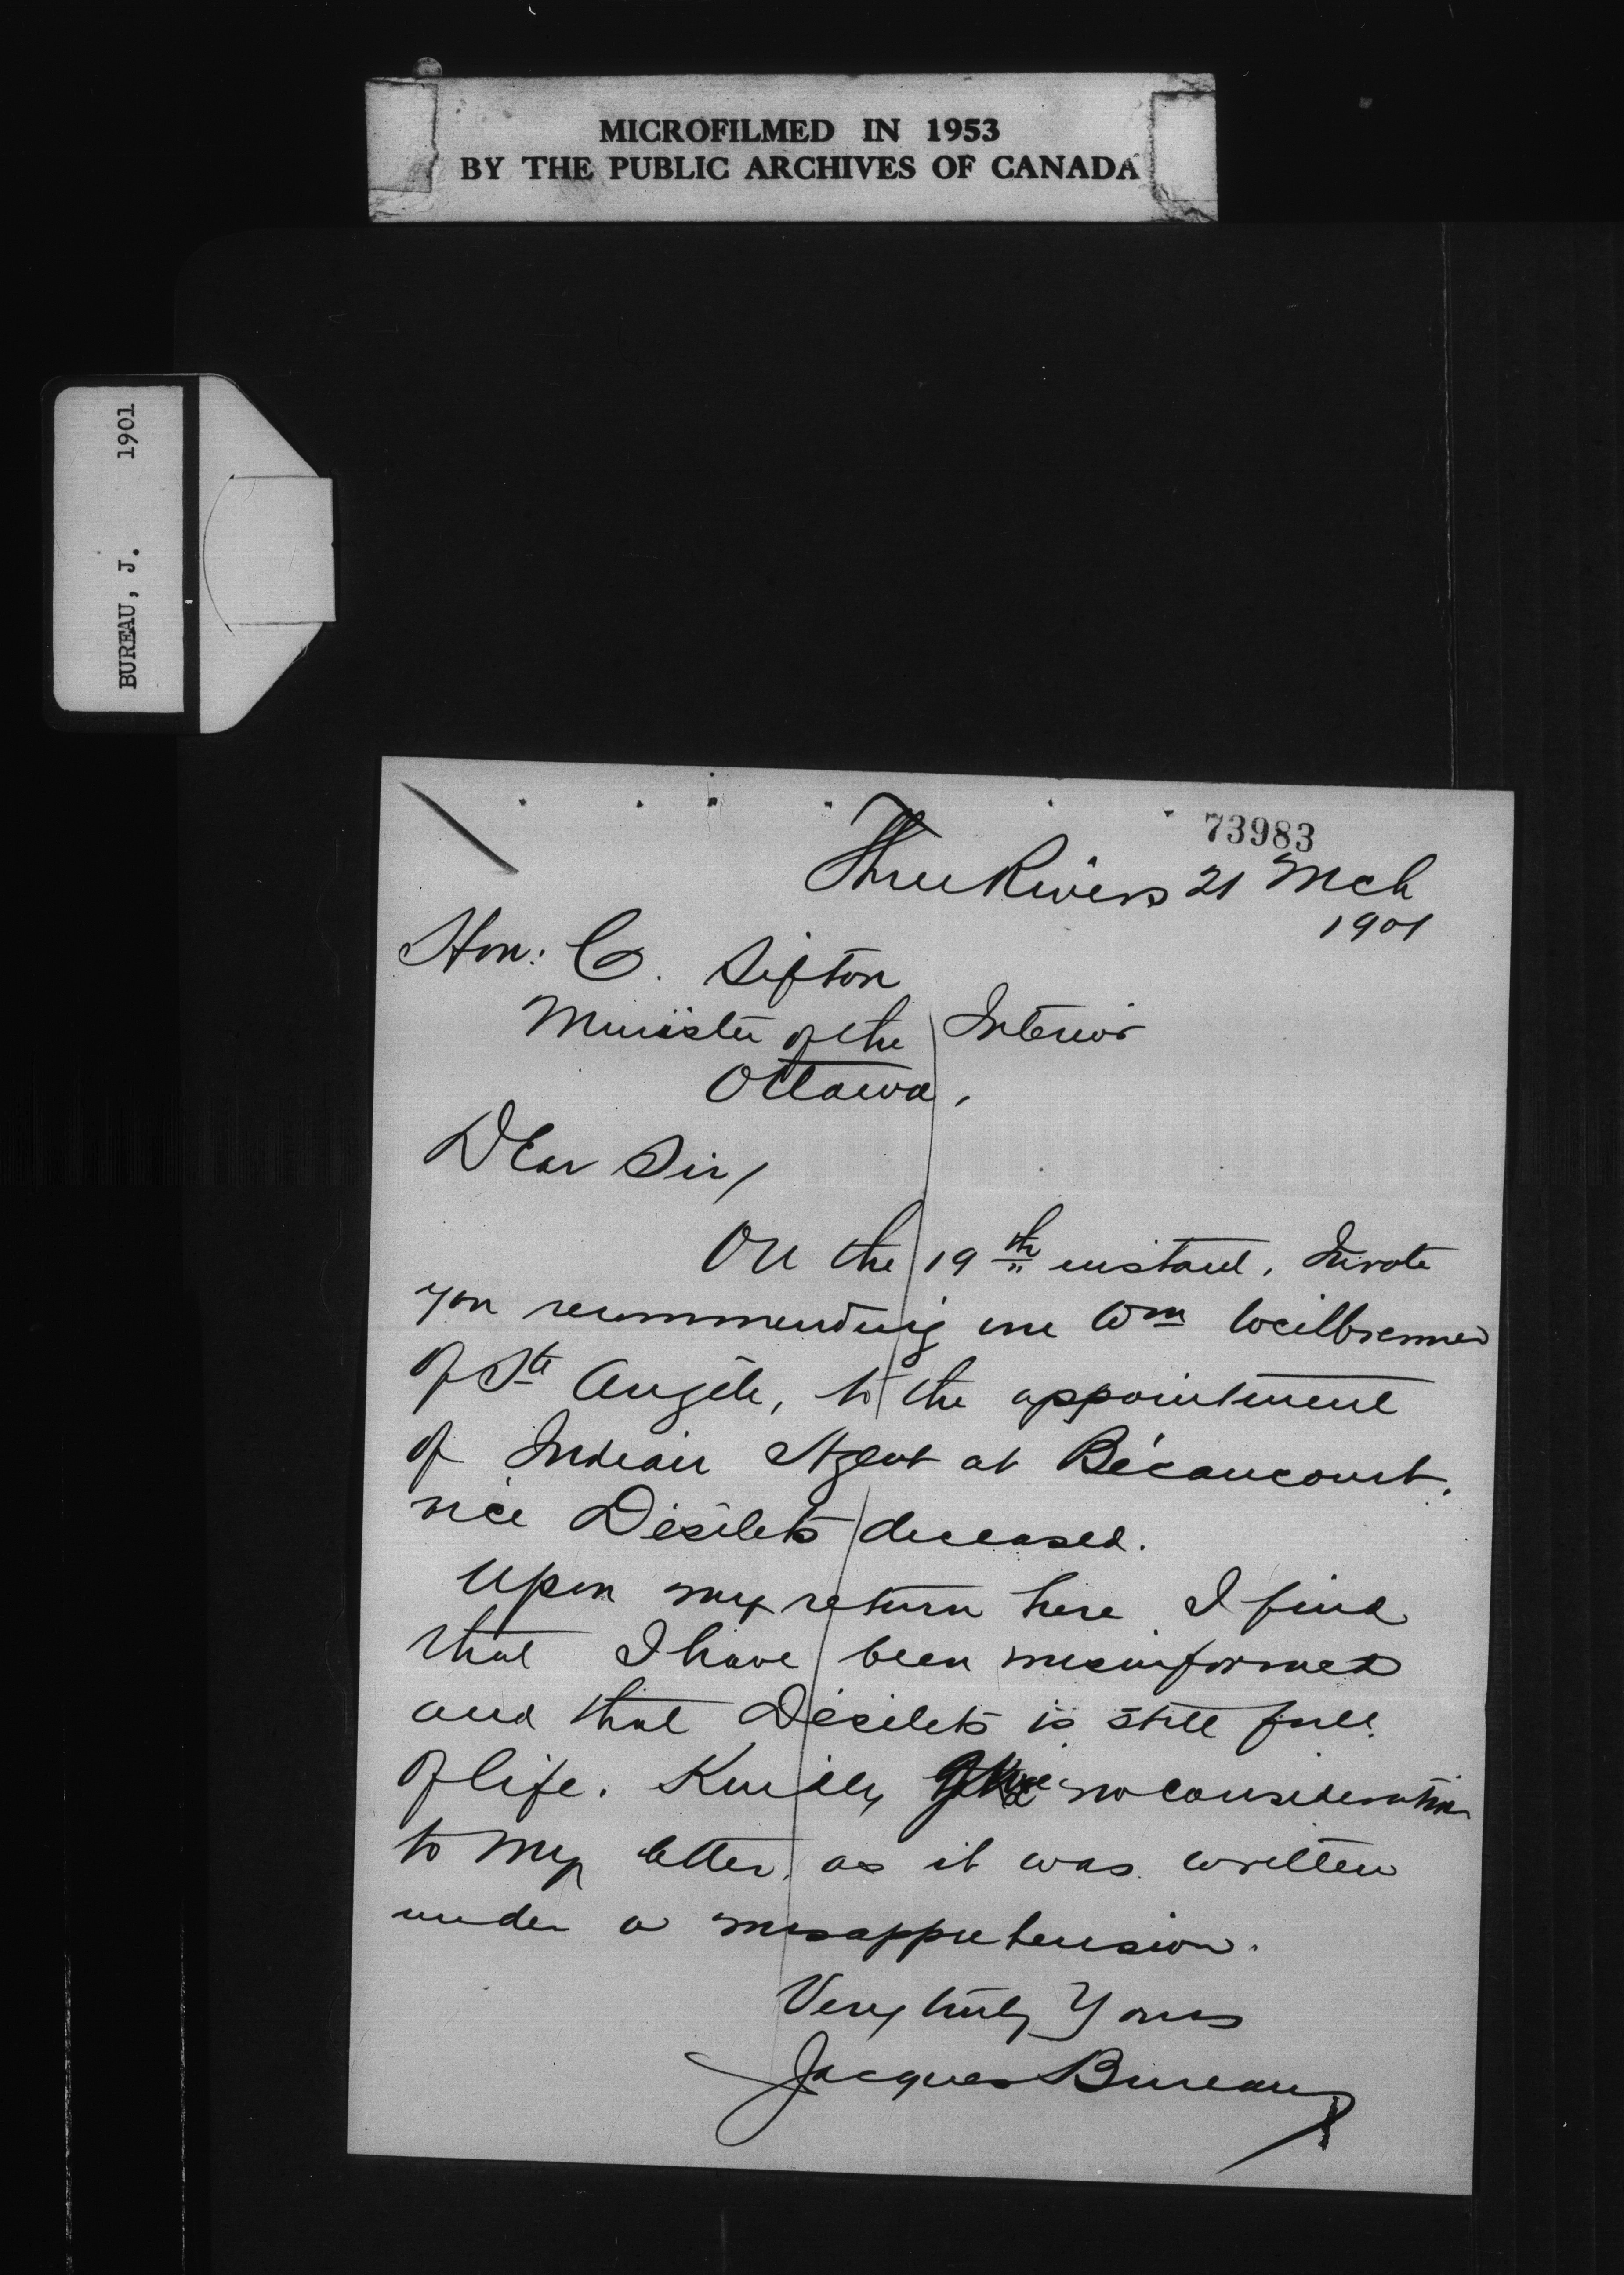 MICROFILMED IN 1953
BY THE PUBLIC ARCHIVES OF CANADA
BUREAU, J. 1901
73983
Three Rivers 21 Mch
1901
Hon: C. Sifton
Minister of the Interior
Ottawa,
Dear Sir,
On the 19th instant, I wrote
you recommending one Wm
of Ste Angèle, to the appointment
of Indian Agent at Bécancourt,
vice Désilets deceased.
Upon my return here I find
that I have been misinformed
and that Désilets is still full
of life. Kindly give no consideration
to my letter, as it was written
under a misapprehension.
Very truly Yours
Jacques Bureau